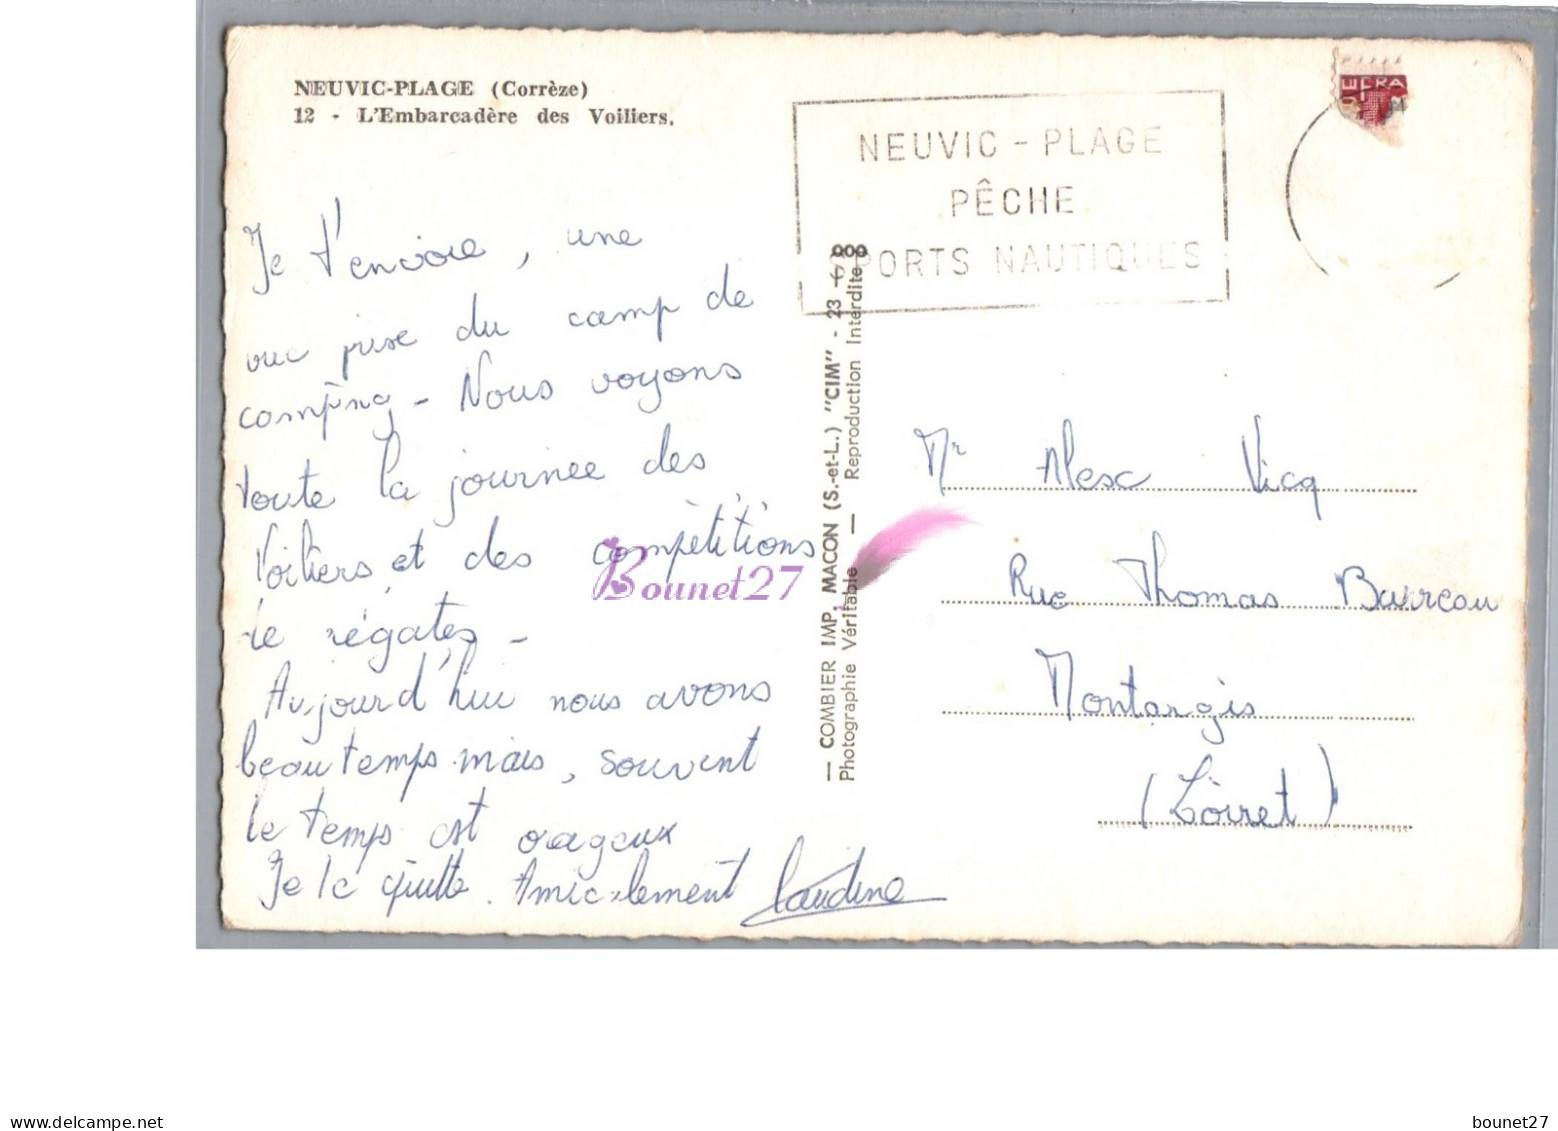 NEUVIC-PLAGE (Corrèze)
12 - L'Embarcadère des Voiliers.
NEUVIC - PLAGE
PÊCHE
SPORTS NAUTIQUES
Je t'envoie, une
vue prise du camp de
camping - Nous voyons
toute la journee des
Voiliers et des compètitions
de régates -
Aujourd'hui nous avons
beau temps mais, souvent
le temps est orageux
Je te quitte. Amicalement Claudine
— COMBIER IMP. MACON (S.-et-L.) "CIM" - 23 -
Photographie Véritable — Reproduction Interdite
Bounet27
Mr Alesc Vicq
Rue Thomas
Montargis
(Loiret)
www.delcampe.net
bounet27